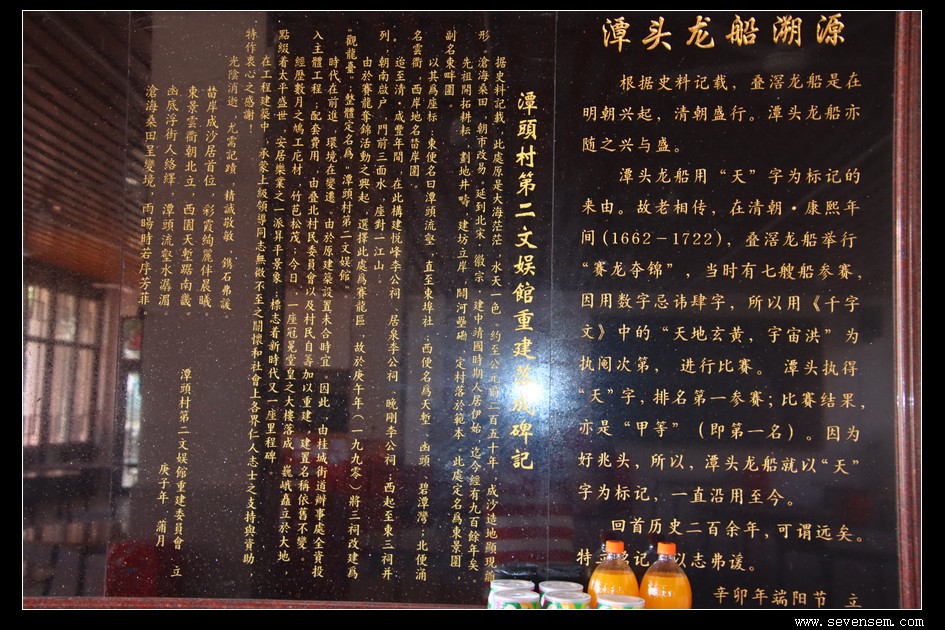 潭头龙船溯源
根据史料记载，叠滘龙船是在
明朝兴起，清朝盛行。潭头龙船亦
随之兴与盛。
潭头龙船用“天”字为标记的
来由。故老相传，在清朝·康熙年
间(1662－1722)，叠滘龙船举行
“赛龙夺锦”，当时有七艘船参赛，
因用数字忌讳肆字，所以用《千字
文》中的“天地玄黄，宇宙洪”为
执阄次第，进行比赛。潭头执得
“天”字，排名第一参赛；比赛结果，
亦是“甲等”（即第一名）。因为
好兆头，所以，潭头龙船就以“天”
字为标记，一直沿用至今。
回首历史二百余年，可谓远矣。
特 记 以志弗谖。
辛卯年端阳节 立
潭頭村第二文娱館重建落成碑記
据史料記載，此處原是大海茫茫，水天一色。約至公元前二百五十年，成沙造地顯現雛
形。滄海桑田，朝市改易，延到北宋·徽宗·建中靖國時期人居伊始，迄今經有九百餘年矣。
先祖開拓耕耘，劃地井疇，建坊立岸，闢河壆硼，定村落於範本，此處定名爲東景園，
副名東畔園。
以其爲座标：東便名曰潭頭流壑，直至東埠社；西便名爲天塹、凼頭、碧潭灣；北便涌
名雲衢，西岸地名苗岸園。
迄至清·咸豐年間，在此構建悦峰李公祠、居泉李公祠、晚剛李公祠；西起至東三祠并
列，朝南啟户，門前三面水，座對一江山。
由於賽龍奪錦活动之興起，選擇此處爲賽龍區，故於庚午年（一九九零）將三祠改建爲
“觀龍臺”；整體定名爲：潭頭村第二文娱館。
時代在前進，環境在變遷。由於原建築設置未合時宜，因此，由桂城街道辦事處全資投
入主體工程；配套費用，由叠北村民委員會以及村民自籌加以重建，建置名称依舊不變。
經歷數月之鳩工庀材，竹苞松茂，今日，一座冠冕堂皇之大樓落成，巍峨矗立於大地，
點綴着太平盛世，安居樂業之一派昇平景象；標志着新時代又一座里程碑。
在工程建築中，承蒙上級領導同志無微不至之關懷和社會上各界仁人志士之支持與資助，
特作衷心之感謝！
光陰消逝，尤需記蹟，精誠敬敏，鐫石弗諼。
苗岸成沙居首位，彩霞絢麗伴晨曦。
東景雲衢朝北立，西園天塹踞南畿。
凼底浮街人絡繹，潭頭流壑水潺湄。
滄海桑田呈變境，雨暘時若序芳菲。
潭頭村第二文娱館重建委員會 立
庚子年·蒲月
www.sevensem.com